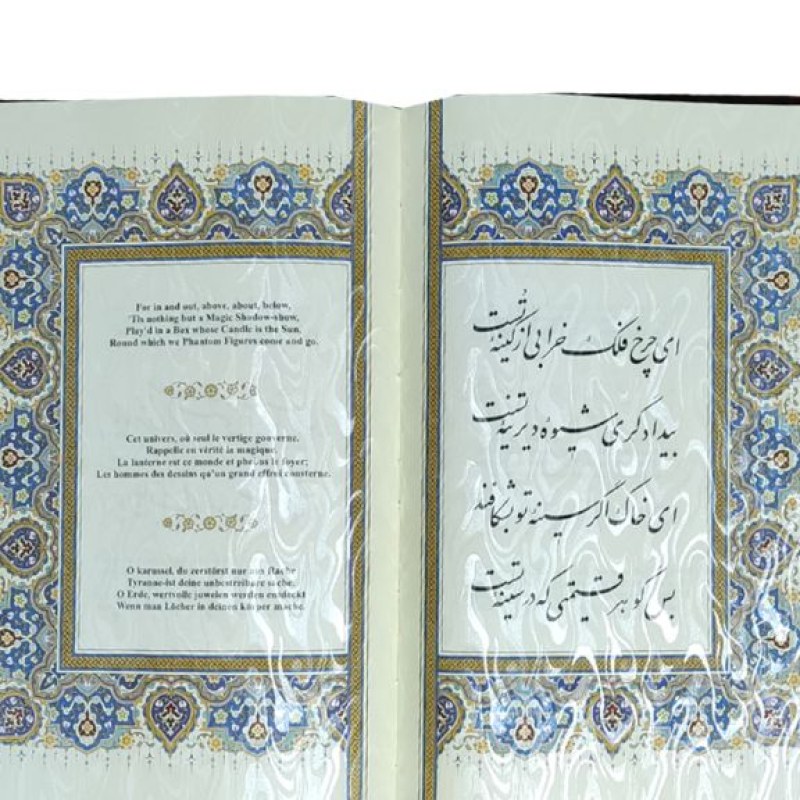 For in and out, above, about, below,
'Tis nothing but a Magic Shadow-show,
Play'd in a Box whose Candle is the Sun,
Round which we Phantom Figures come and go.
Cet univers, où seul le vertige gouverne,
Rappelle en vérité la magique.
La lanterne est ce monde et phœbus le foyer;
Les hommes des dessins qu'un grand effroi consterne.
O karussel, du zerstörst nur aus Rache
Tyranne-ist deine unbestreibare sache.
O Erde, wertvolle juwelen werden entdeckt
Wenn man Löcher in deinen körper mache.
ای چرخ فلک خرابی از کینهٔ تُست
بیدادگری شیوهٔ دیرینهٔ تست
ای خاک اگر سینهٔ تو بشکافند
بس گوهر قیمتی که در سینهٔ تست